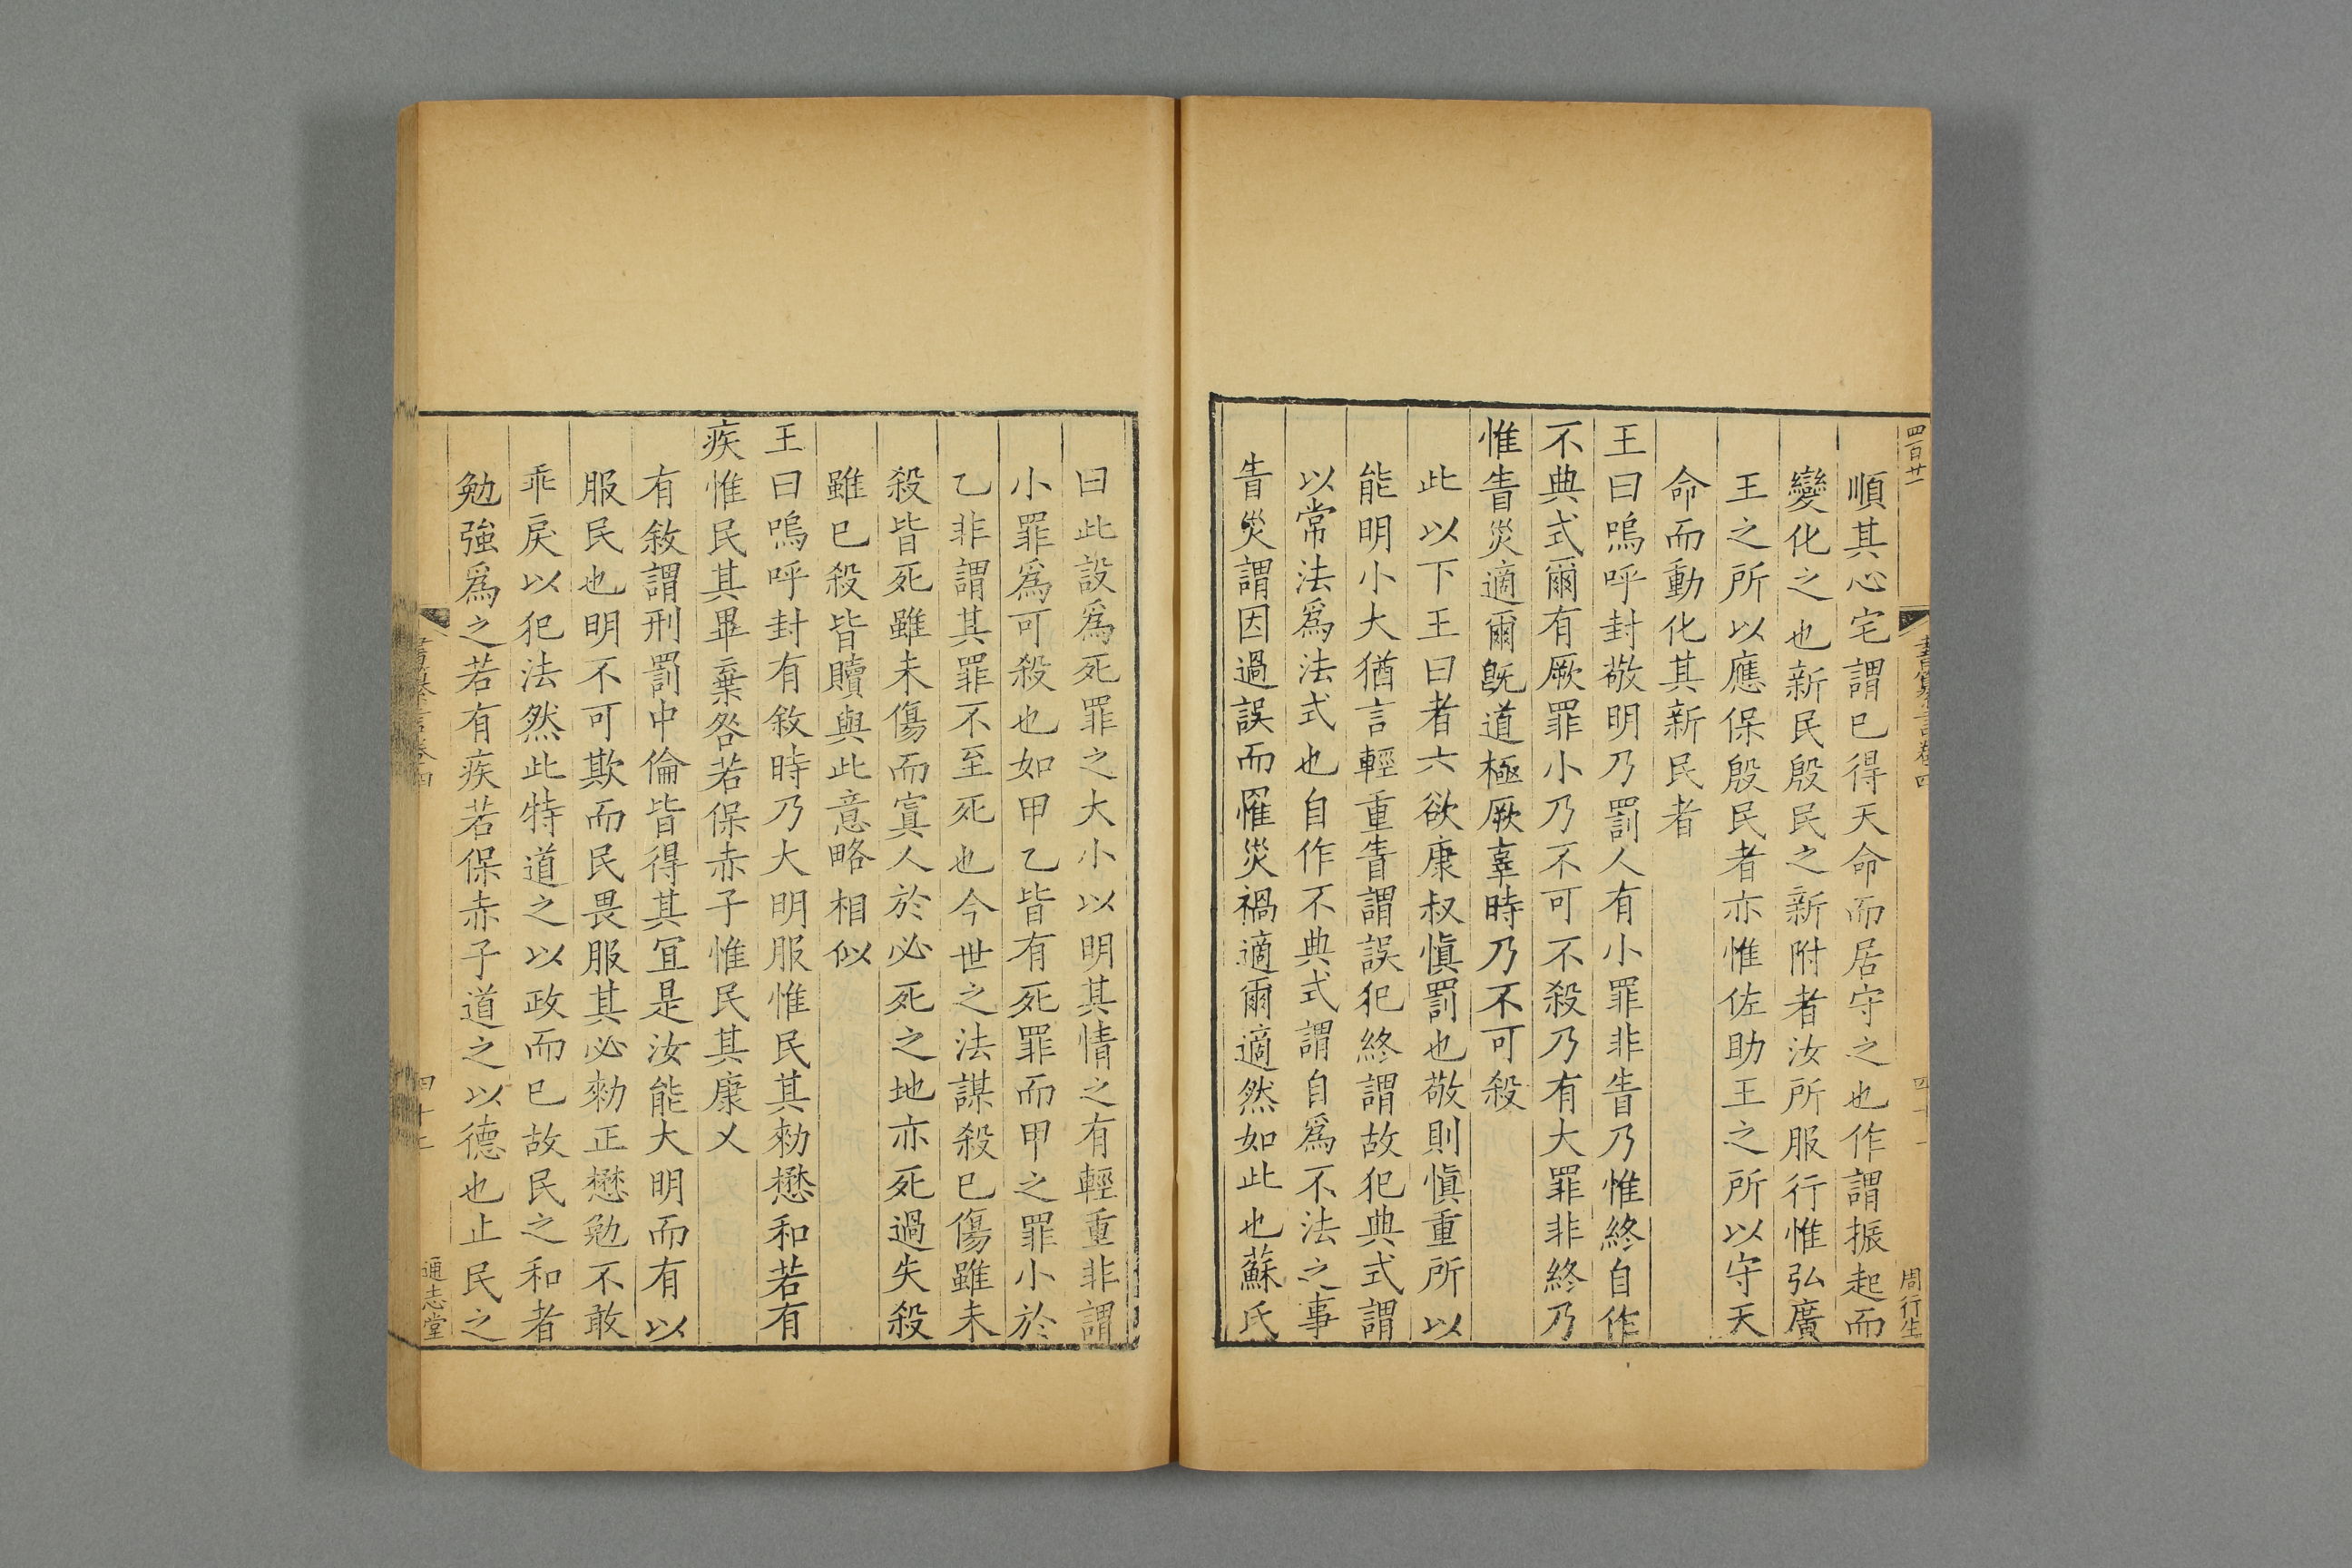 四百廿一
順其心宅謂已得天命而居守之也作謂振起而
變化之也新民殷民之新附者汝所服行惟弘廣
王之所以應保殷民者亦惟佐助王之所以守天
命而動化其新民者
王曰嗚呼封敬明乃罰人有小罪非眚乃惟終自作
不典式爾有厥罪小乃不可不殺乃有大罪非終乃
惟眚災適爾旣道極厥辜時乃不可殺
此以下王曰者六欲康叔愼罰也敬則愼重所以
能明小大猶言輕重眚謂誤犯終謂故犯典式謂
以常法爲法式也自作不典式謂自爲不法之事
眚災謂因過誤而罹災禍適爾適然如此也蘇氏
周行生
曰此設爲死罪之大小以明其情之有輕重非謂
小罪爲可殺也如甲乙皆有死罪而甲之罪小於
乙非謂其罪不至死也今世之法謀殺已傷雖未
殺皆死雖未傷而寘人於必死之地亦死過失殺
雖已殺皆贖與此意略相似
王曰嗚呼封有敘時乃大明服惟民其勑懋和若有
疾惟民其畢棄咎若保赤子惟民其康乂
有敘謂刑罰中倫皆得其宜是汝能大明而有以
服民也明不可欺而民畏服其必勑正懋勉不敢
乖戾以犯法然此特道之以政而已故民之和者
勉強爲之若有疾若保赤子道之以德也止民之
通志堂